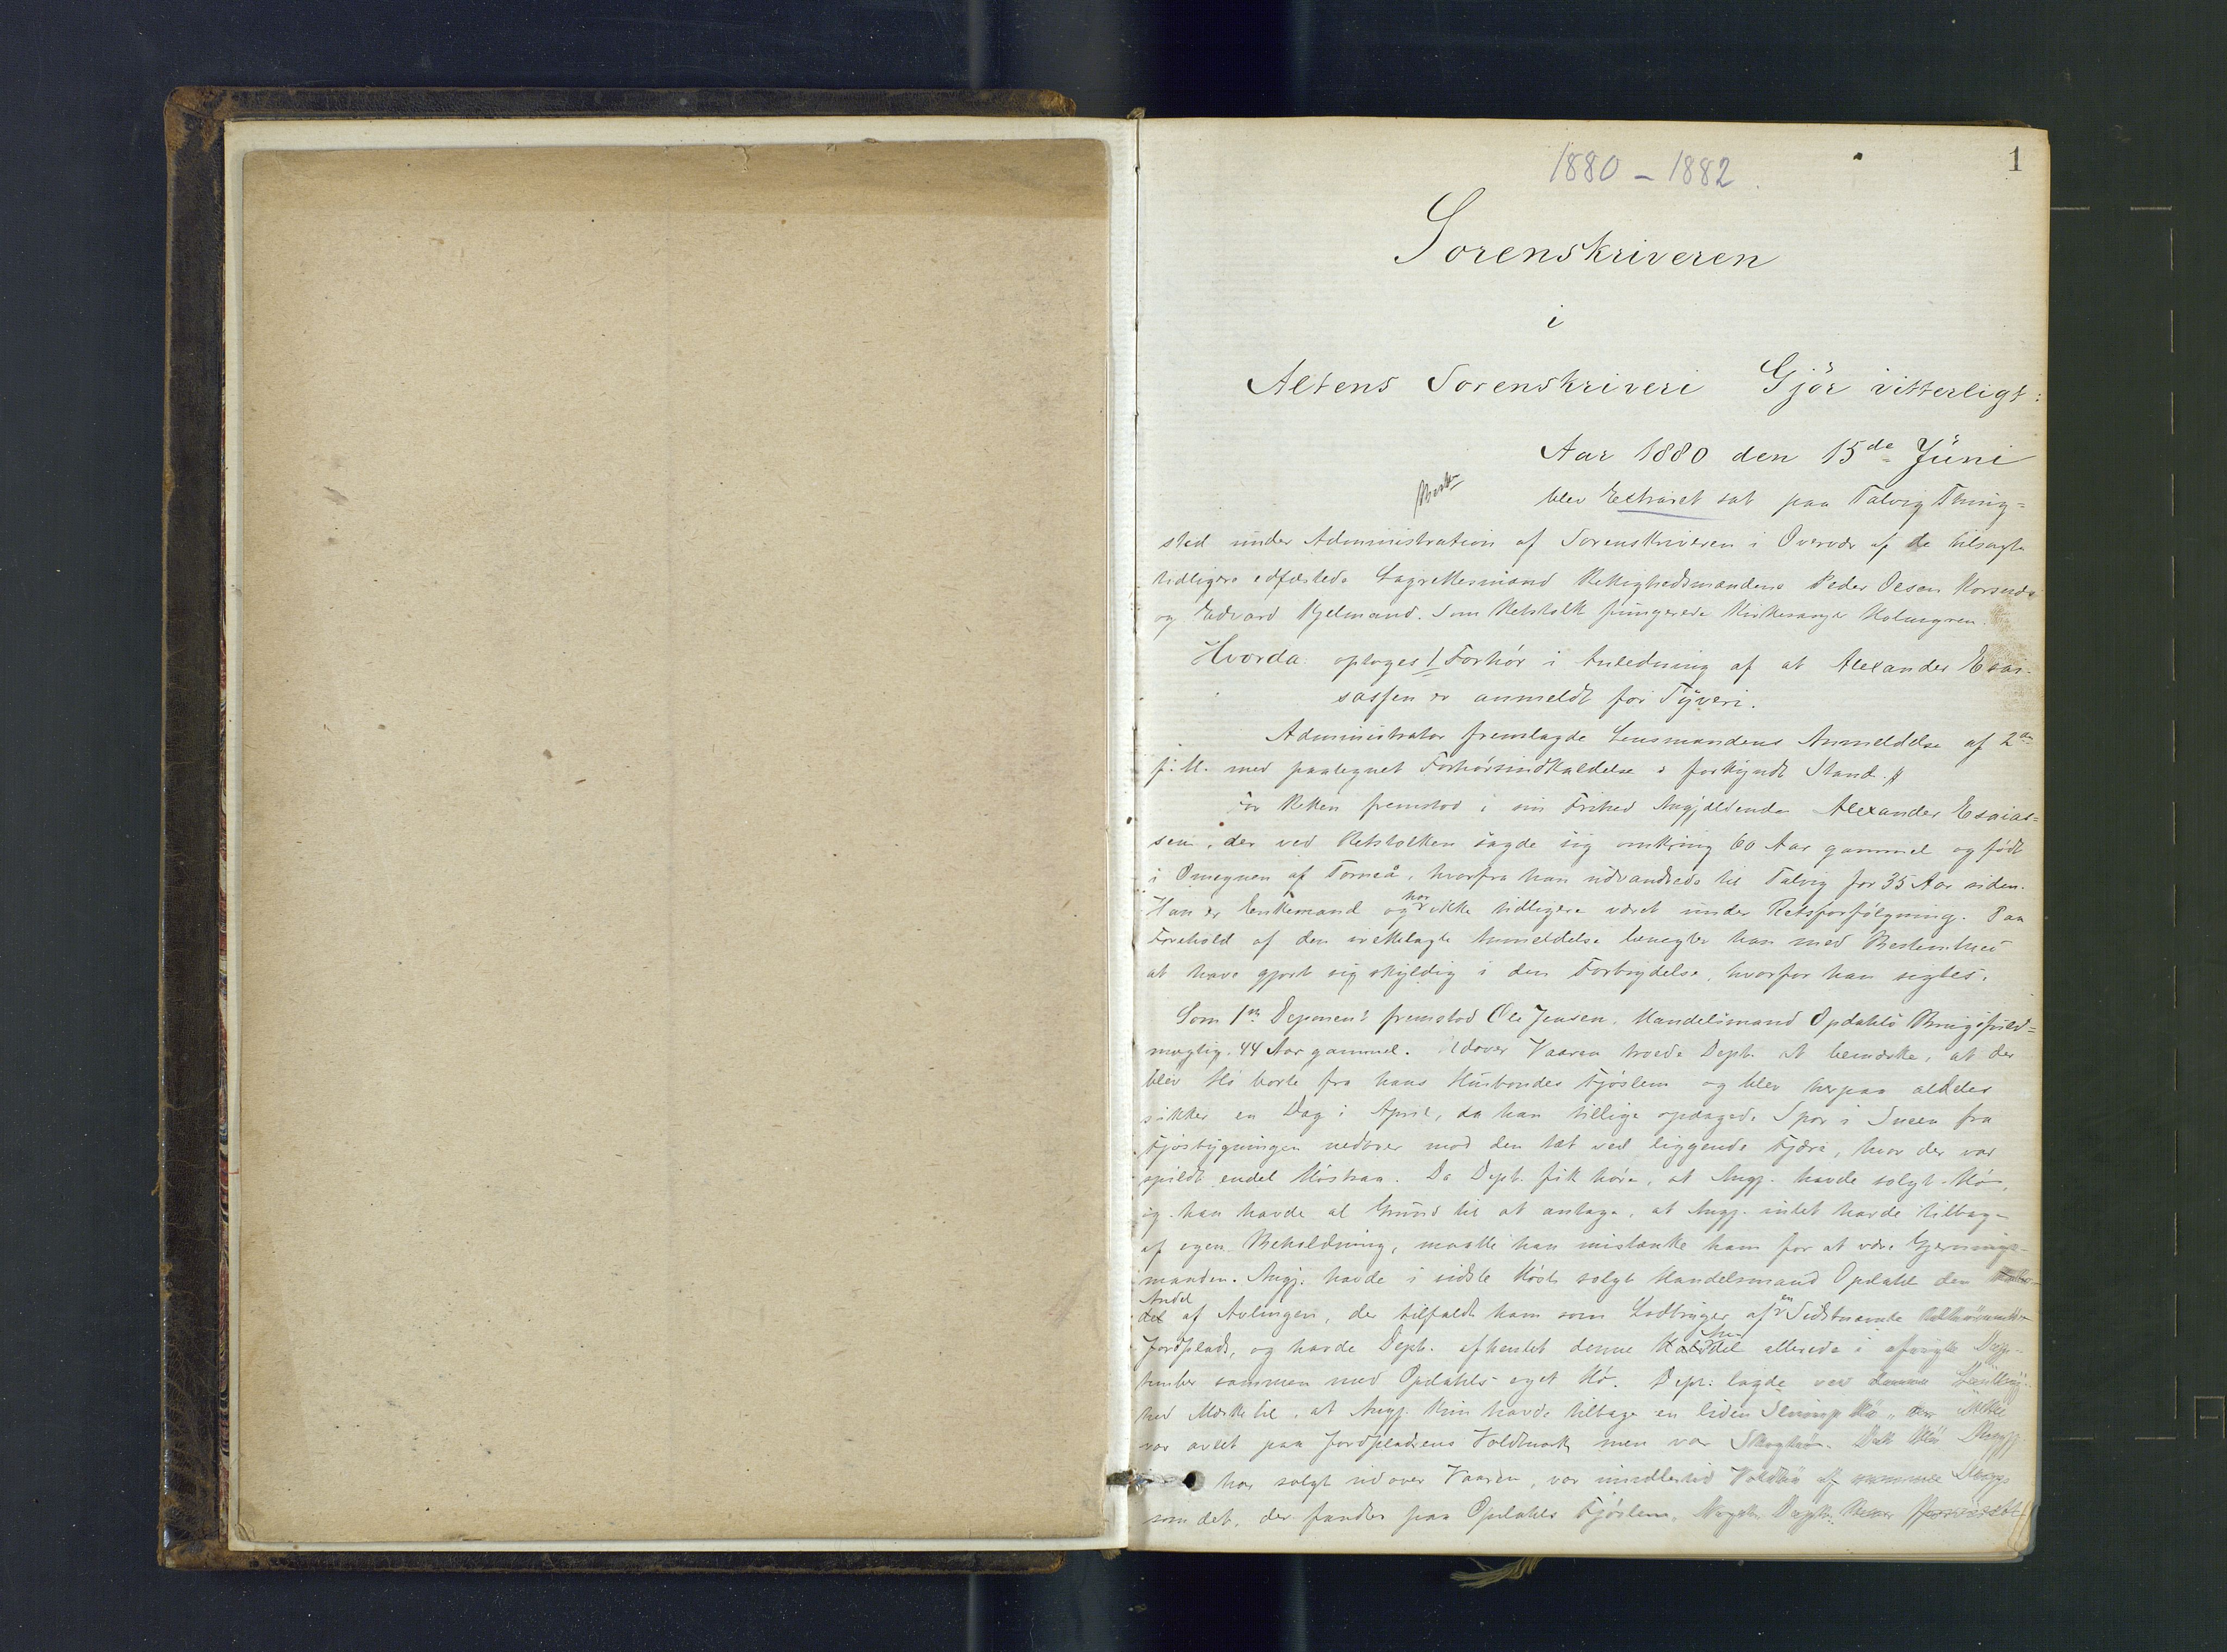 1
1880 – 1882.
Sorenskriveren
i
Altens Sorenskriveri Gjör vitterligt:
Aar 1880 den 15de Juni
blev Extraret sat paa Talvig Thing=
sted under Administration af Sorenskriveren i Overvær af de tilsagte
tidligere edfæstede Lagrettesmænd Rettighedsmændene Peder Olsen Korsnes
og Edvard Kjelmand. Som Retstolk fungerede Kirkesanger Holmgren.
Hvorda optoges 1/ Forhör i Anledning af at Alexander Esaia-
sassen er anmeldt for Tyveri.
Administrator fremlagde Lensmandens Anmeldelse af 2den
f. M. med paategnet Forhörsindkaldelse i forkyndt Stand.
For Retten fremstod i sin Frihed Angjældende Alexander Esaias=
sen, der ved Retstolken sagde sig omkring 60 Aar gammel og födt
i Omegnen af Torneå, hvorfra han udvandrede til Talvig for 35 Aar siden.
Han er Enkemand og har ikke tidligere været under Retsforfölgning. Paa
Forehold af den irettelagte Anmeldelse benegter han med Bestemthed
at have gjort sig skyldig i den Forbrydelse, hvorfor han sigtes.
Som 1ste Deponent fremstod Ole Jensen, Handelsmand Opdahls Brugsfuld=
mægtig, 44 Aar gammel. Udover Vaaren troede Dept. at bemærke, at der
blev Hö borte fra hans Husbondes Fjöslem og blev herpaa aldeles
sikker en Dag i April, da han tillige opdagede Spor i Sneen fra
Fjösbygningen nedover mod den tæt ved liggende Fjære, hvor der var
spildt endel Höstraa. Da Dept. fik höre, at Angj. havde solgt Hö,
og han havde al Grund til at antage, at Angj. intet havde tilbage
af egen Beholdning, maatte han mistænke ham for at være Gjernings-
manden. Angj. havde i sidste Höst solgt Handelsmand Opdahl den
Andel
af Avlingen, der tilfaldt ham som Lodbruger af en Sidstnævnte tilhörende
Jordplads, og havde Dept. afhentet denne Andel allerede i afvigte Sep-
tember sammen med Opdahls eget Hö. Dept. lagde ved Leilig-
hed Mærke til, at Angj. kun havde tilbage en liden Slump Hö, der ikke
var avlet paa Jordpladsens Voldmark men var Skoghö. Det Hö Angj.
har solgt udover Vaaren, var imidlertid Voldhö af samme Slags
som det, der fandtes paa Opdahls Fjöslem.